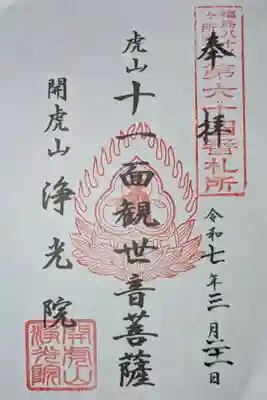 奉拝
第六十四番札所
令和七年三月二十一日
虎山 十一面観世音菩薩
開虎山 浄光院
開虎山
浄光院